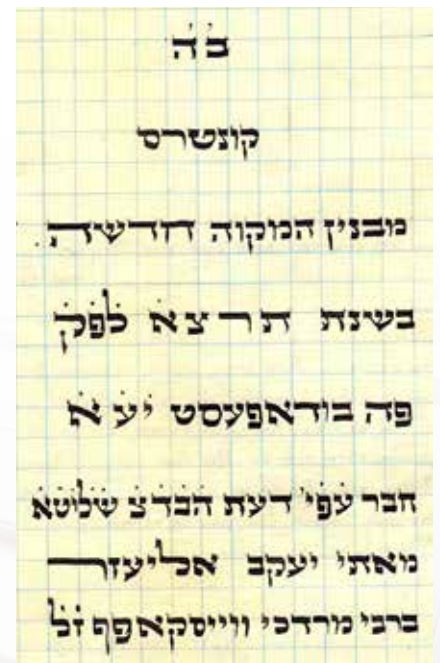 ב״ה
קונטרס
מבנין המקוה חדשה.
בשנת תרצא לפק
פה בודאפעסט יעא
חבר עפ״י דעת הבדצ שלוטא
מאתי יעקב אליעזר
ברבי מרדכי ווייסקאפף זל